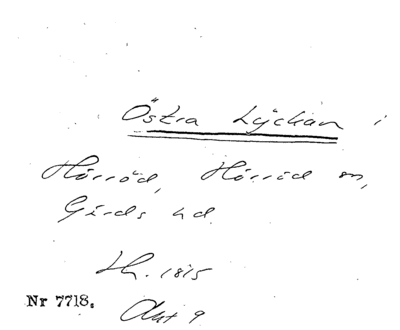 Östra Lyckan i
Hörröd, Hörröd sn,
Gärds hd.
Lh. 1815
Nr 7718.
Akt 9